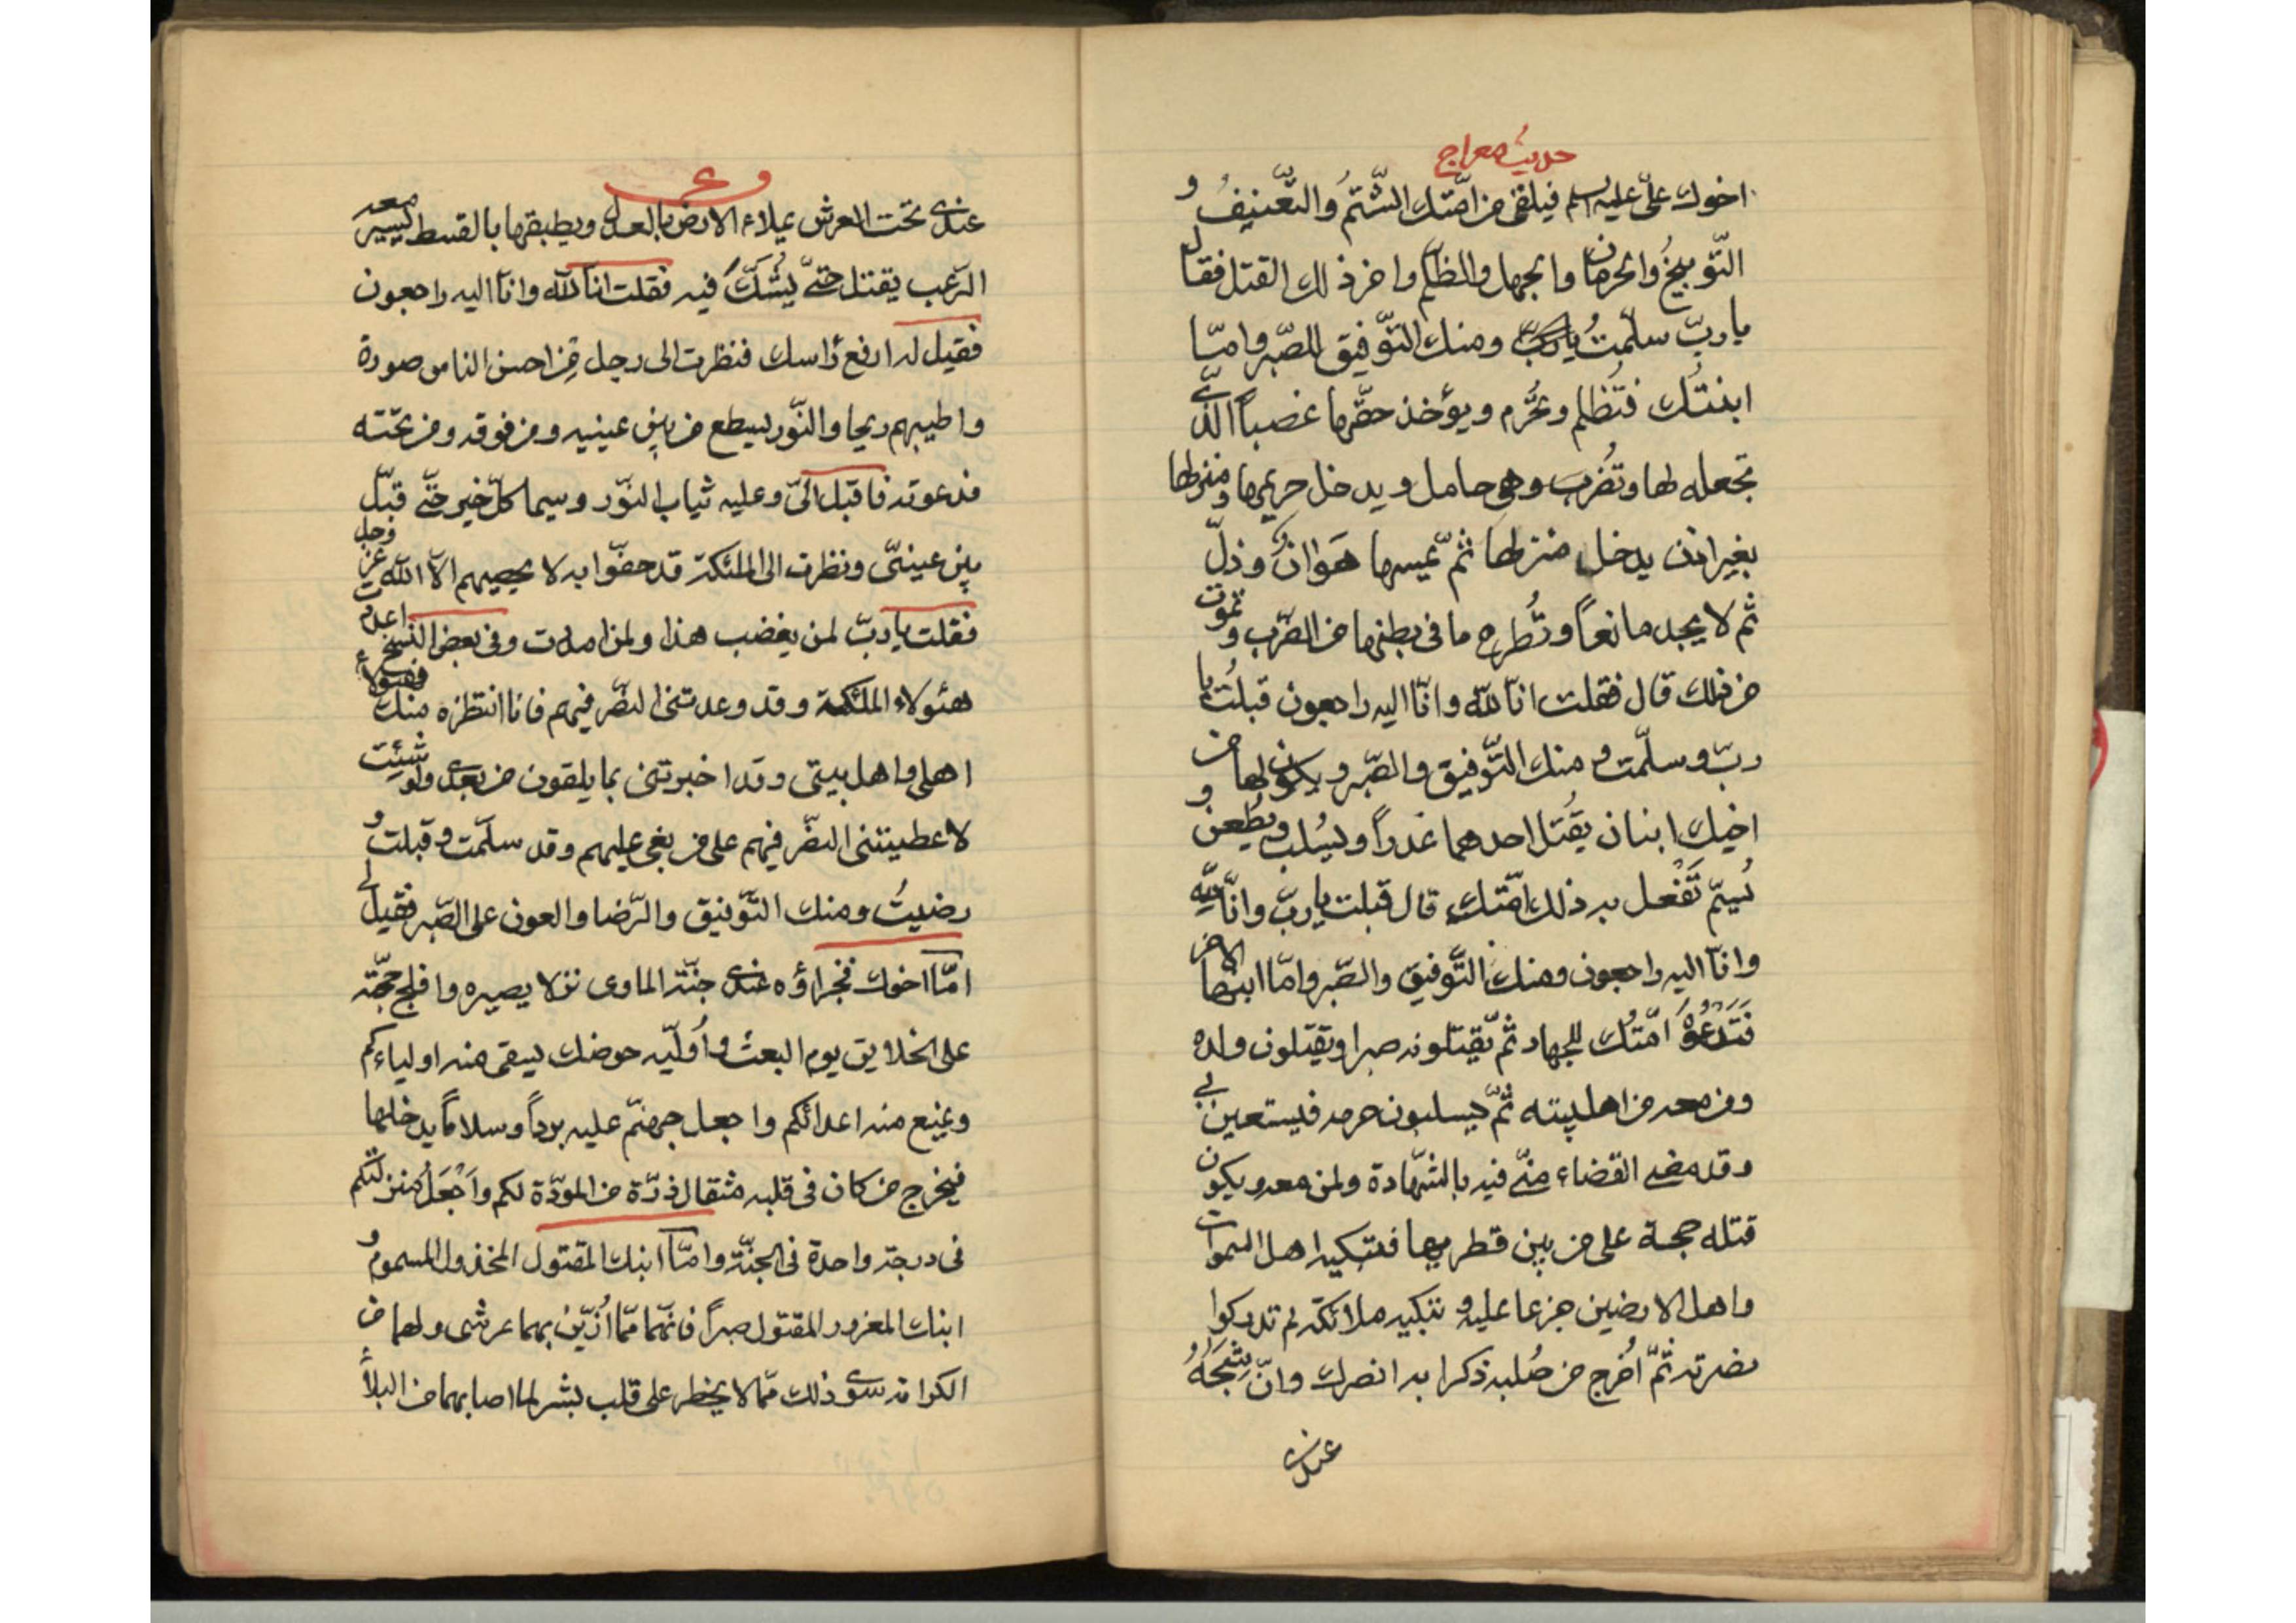 حديث معراج
اخوك علىّ عليه السلم فيلقى من امّتك الشّتمُ والتّعنيفُ و
التّوبيخُ والحرمان والجهل والظلم واخر ذلك القتل فقال
يا ربّ سلّمتُ ومنك التّوفيق للصّبر وامّا
ابنتُك فتُظلم وتحُرم ويؤخذ حقّها غصباً الّذى
تجعله لها وتُضرب وهى حامل ويدخل حريمها ومنزلها
بغير اذن يدخل منزلها ثمّ يمسها هَوانٌ وذلّ
ثم لا يجد مانعاً وتُطرح ما فى بطنها من الضّرب وتموت
من ذلك قال فقلت انّا للّه وانّا اليه راجعون قبلتُ يا
ربّ وسلّمت ومنك التّوفيق والصّبر ويكون لها من
اخيك ابنان يقُتل احدهما غدراً ويسُلب ويُطعن و
يُسمّ تَفْعل به ذلك امّتك قال قبلت يا ربّ وانّا للّه
وانّا اليه راجعون ومنك التّوفيق والصّبر وامّا ابنها الاخر
فَتَدْعُوْهُ امّتُك للجهاد ثمّ يقتلونه صبرا ويقتلون ولده
ومن معه من اهل بيته ثمّ يسلبون حرمه فيستعين بى
وقد مضى القضاء منّى فيه بالشّهادة ولمن معه ويكون
قتله حجة على من بين قطريها فتبكيه اهل السموات
واهل الارضين جزعا عليه وتبكيه ملائكة لم تدركوا
نضرته ثمّ اُخرج من صُلبه ذكرا به انصرك وانّ شَجَهُ
عندى
عندى تحت العرش يملاء الارض بالعدل ويطبقها بالقسط يسير معه
الرّعب يقتل حتّى يُشكَّ فيه فقلت انّا للّه وانّا اليه راجعون
فقيل له ارفع رأسك فنظرت الى رجل من احسن الناس صورة
واطيبهم ريحا والنّور يسطع من بين عينيه ومن فوقه ومن تحته
فدعوته فاقبل الىّ وعليه ثياب النّور وسيما كلّ خير حتّى قبّل
بين عينىّ ونظرت الى الملئكة قد حفّوا به لا يحصيهم الّا اللّه عزّ وجل
فقلت يا ربّ لمن يغضب هذا ولمن اعددت وفى بعض النسخ
هئولاء الملئكة وقد وعدتنى النّصر فيهم فانا انتظره منك فهئولاء
اهلى واهل بيتى وقد اخبرتنى بما يلقون من بعدى ولو شئِت
لاعطيتنى النصّر فيهم على من بغى عليهم وقد سلّمت وقبلت و
رضيتُ ومنك التّوفيق والرّضا والعون على الصّبر فقيل لى
امّا اخوك فجزاؤه عندى جنّة الماوى نزلا بصبره وافلج حجّته
على الخلايق يوم البعث واُولّيه حوضك يسقى منه اولياءكم
ويمنع منه اعدائكم واجعل جهنّم عليه برداً وسلاماً يدخلها
فيخرج من كان فى قلبه مثقال ذرّة من المودّة لكم واَجْعَلُ منزلتكم
فى درجة واحدة فى الجنّة وامّا ابنك المقتول المخذول المسموم و
ابنك المغرور المقتول صبراً فانّهما ممّا اُزيّن بهما عرشى ولهما من
الكرامة سوى ذلك ممّا لا يخطر على قلب بشر لما اصابهما من البلاء